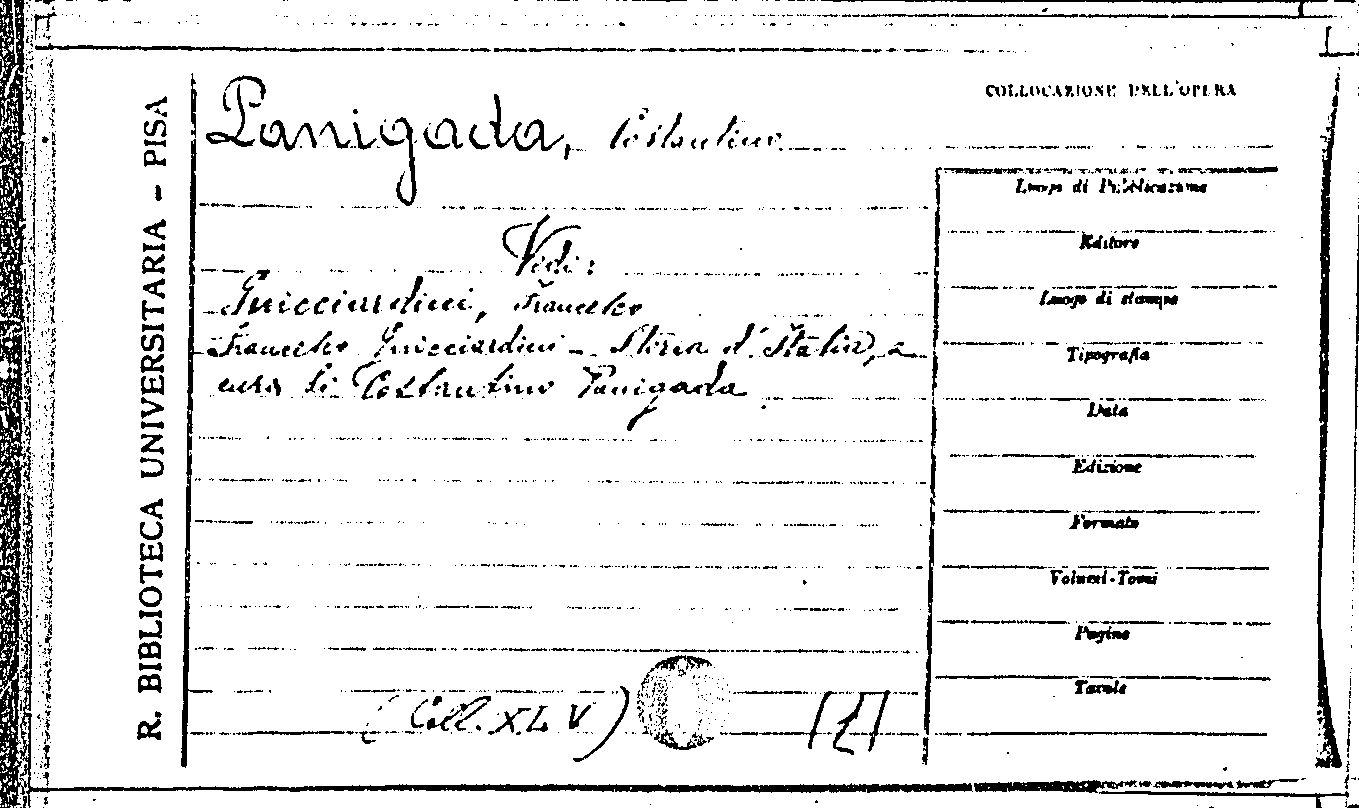 R. BIBLIOTECA UNIVERSITARIA – PISA
Panigada, Costantino
Vedi:
Guicciardini, Francesco
Francesco Guicciardini – Storia d'Italia, a
cura di Costantino Panigada
(Coll. XL V)
COLLOCAZIONE DELL'OPERA
Luogo di Pubblicazione
Editore
Luogo di stampa
Tipografia
Data
Edizione
Formato
Volumi-Tomi
Pagine
Tavole